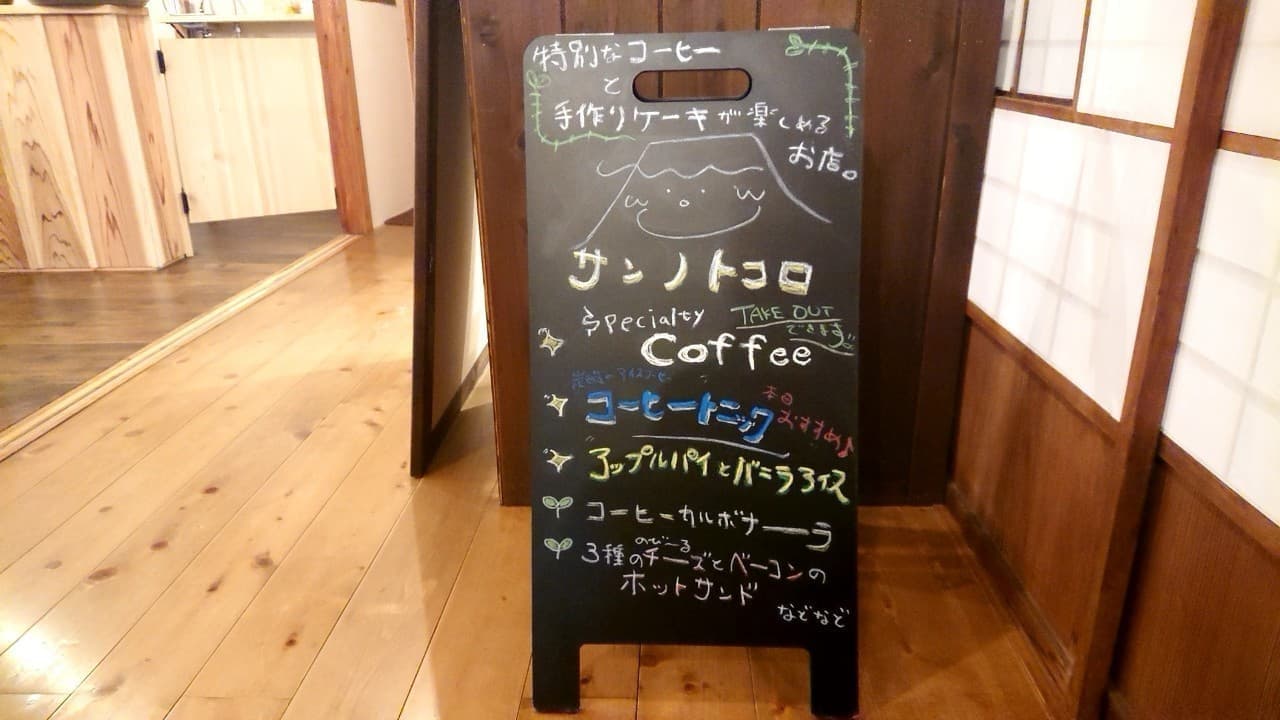 特別なコーヒー
と
手作りケーキが楽しめる
お店。
サンノトコロ
Specialty
TAKE OUT
できます。
Coffee
アイスコーヒー
コーヒートニック
本日
おすすめ♪
アップルパイとバニラアイス
コーヒーカルボナーーラ
のびーる
3種のチーズとベーコンの
ホットサンド
などなど